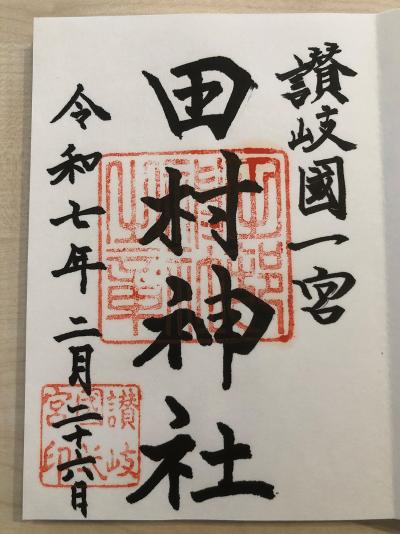 讃岐國一宮
田村神社
令和七年 二月二十六日
讃岐
國一
宮印